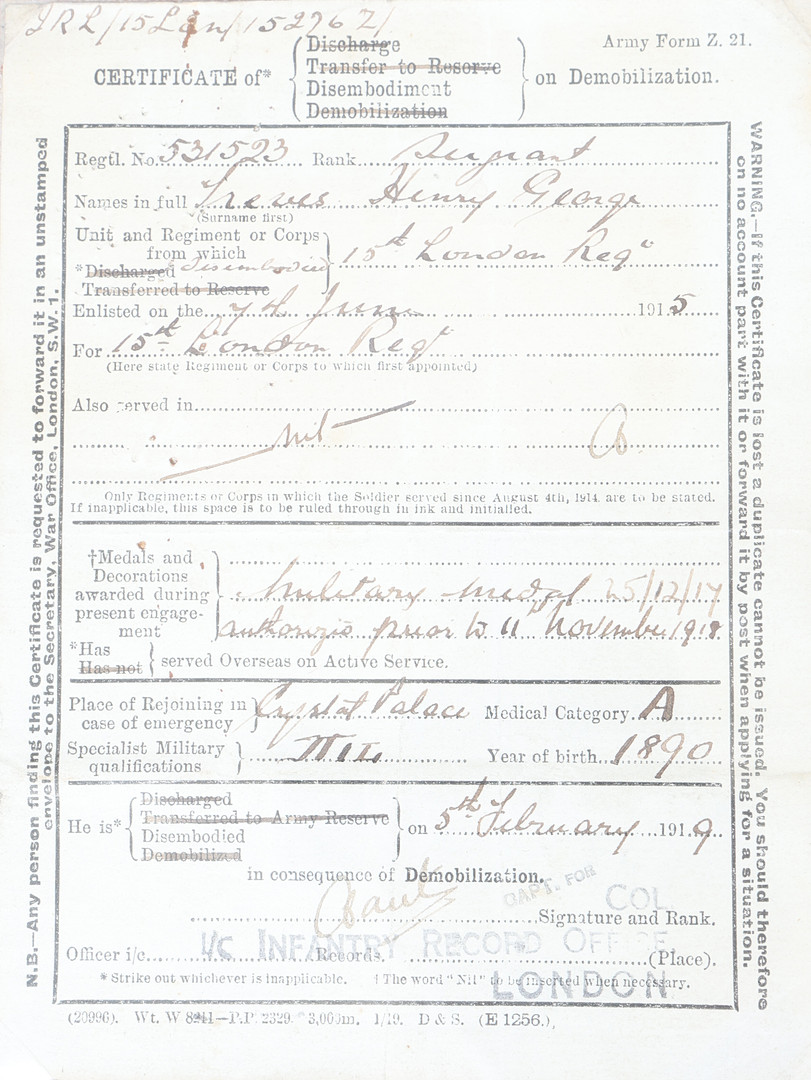 Army Form Z. 21.
CERTIFICATE of* { Discharge
Transfer to Reserve
Disembodiment
Demobilization } on Demobilization.
Regtl. No. 531523 Rank Sergeant
Names in full Henry George
(Surname first)
Unit and Regiment or Corps
from which
*Discharged disembodied
Transferred to Reserve } 15th London Regt
Enlisted on the 7th June 1915
For 15th London Regt
(Here state Regiment or Corps to which first appointed)
Also served in
nil
Only Regiments or Corps in which the Soldier served since August 4th, 1914. are to be stated.
If inapplicable, this space is to be ruled through in ink and initialled.
†Medals and
Decorations
awarded during
present engage-
ment } Military Medal 25/12/17
authorized prior to 11th November 1918
*Has
Has not } served Overseas on Active Service.
Place of Rejoining in
case of emergency } Crystal Palace Medical Category A
Specialist Military
qualifications } Nil Year of birth 1890
He is* { Discharged
Transferred to Army Reserve
Disembodied
Demobilized } on 5th February 1919
in consequence of Demobilization.
CAPT. FOR COL.
Signature and Rank.
Officer i/c Records. (Place).
I/C INFANTRY RECORD OFFICE
LONDON
*Strike out whichever is inapplicable. † The word "Nil" to be inserted when necessary.
(20996). Wt. W 8241—P.P. 2329. 3,000m. 1/19. D & S. (E 1256.)
N.B.—Any person finding this Certificate is requested to forward it in an unstamped
envelope to the Secretary, War Office, London, S.W. 1.
WARNING.—If this Certificate is lost a duplicate cannot be issued. You should therefore
on no account part with it or forward it by post when applying for a situation.